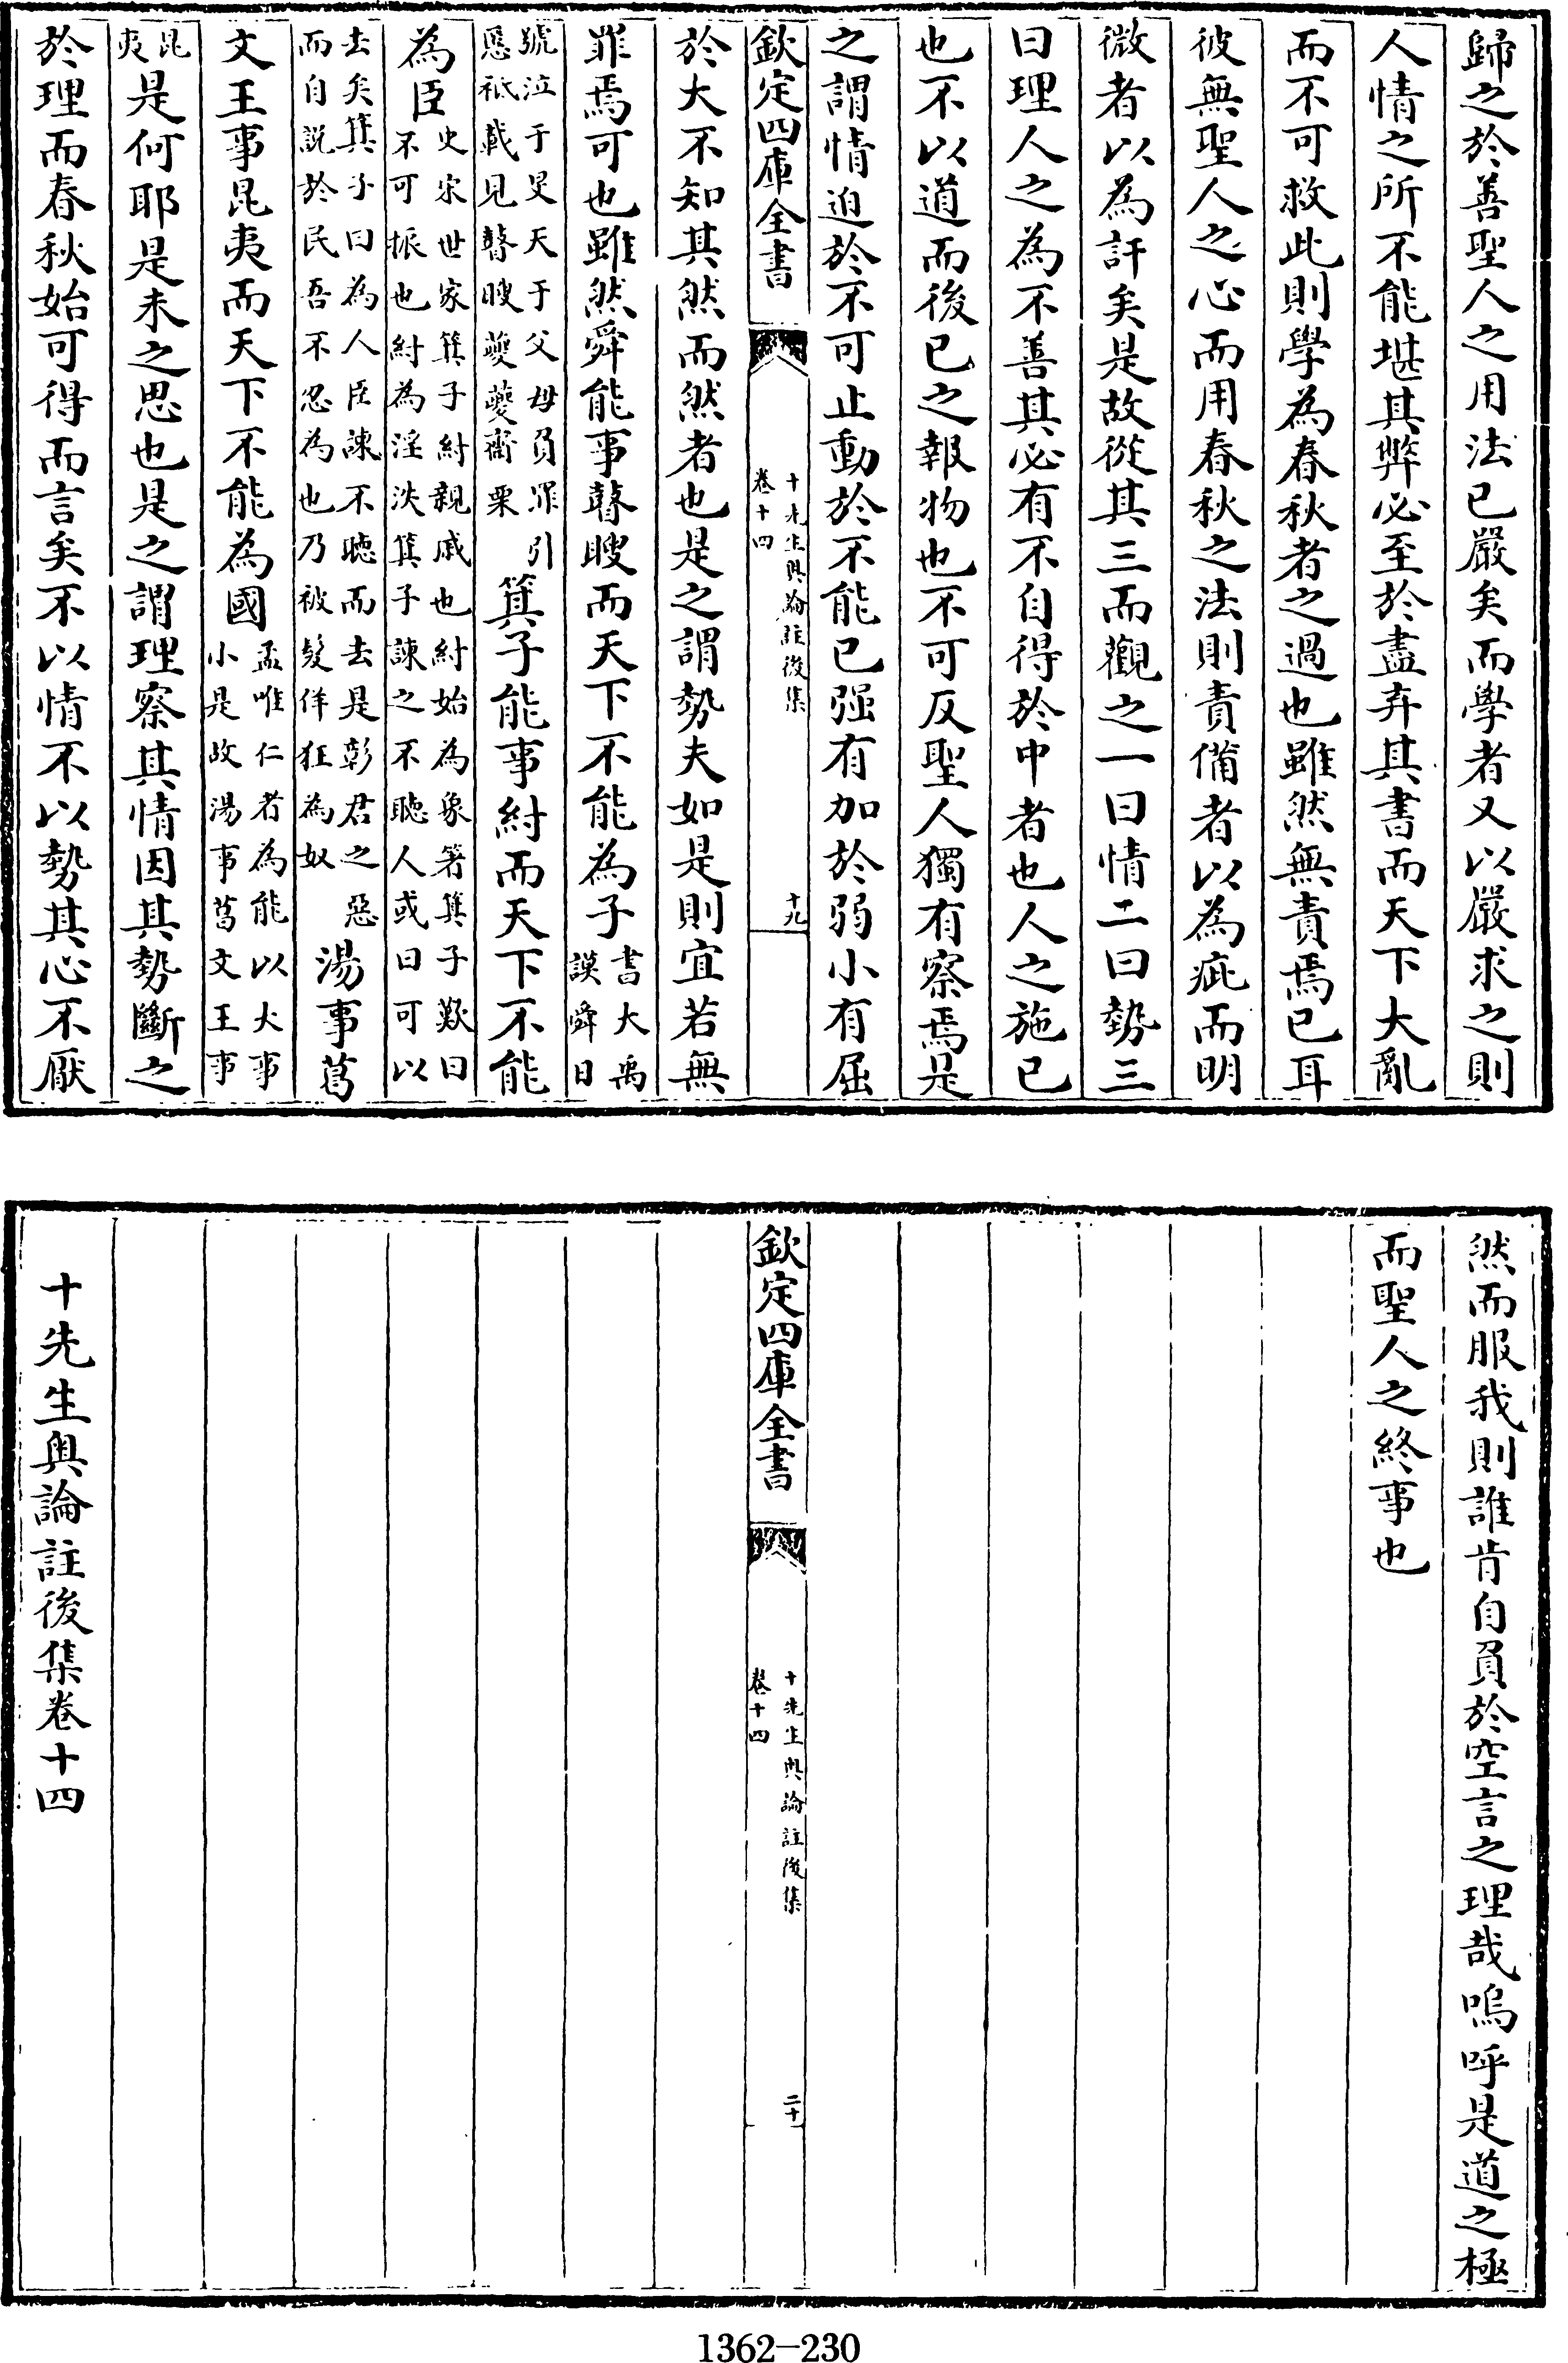 歸之於善聖人之用法已嚴矣而學者又以嚴求之則
人情之所不能堪其弊必至於盡弃其書而天下大亂
而不可救此則學為春秋者之過也雖然無責焉已耳
彼無聖人之心而用春秋之法則責備者以為疵而明
微者以為訐矣是故從其三而觀之一曰情二曰勢三
曰理人之為不善其必有不自得於中者也人之施已
也不以道而後已之報物也不可反聖人獨有察焉是
之謂情迫於不可止動於不能已强有加於弱小有屈
欽定四庫全書
十先生奥論註後集
卷十四
十九
於大不知其然而然者也是之謂勢夫如是則宜若無
罪焉可也雖然舜能事瞽瞍而天下不能為子書大禹謨舜日
號泣于旻天于父母負罪引慝祗載見瞽瞍夔夔齋栗箕子能事紂而天下不能
為臣史宋世家箕子紂親戚也紂始為象箸箕子歎曰不可振也紂為淫泆箕子諫之不聽人或曰可以
去矣箕子曰為人臣諫不聽而去是彰君之惡而自説於民吾不忍為也乃被髮佯狂為奴湯事葛
文王事昆夷而天下不能為國孟唯仁者為能以大事小是故湯事葛文王事
昆夷是何耶是未之思也是之謂理察其情因其勢斷之
於理而春秋始可得而言矣不以情不以勢其心不厭
然而服我則誰肯自負於空言之理哉嗚呼是道之極
而聖人之終事也
欽定四庫全書
十先生奥論註後集
卷十四
二十
十先生奥論註後集卷十四
1362-230